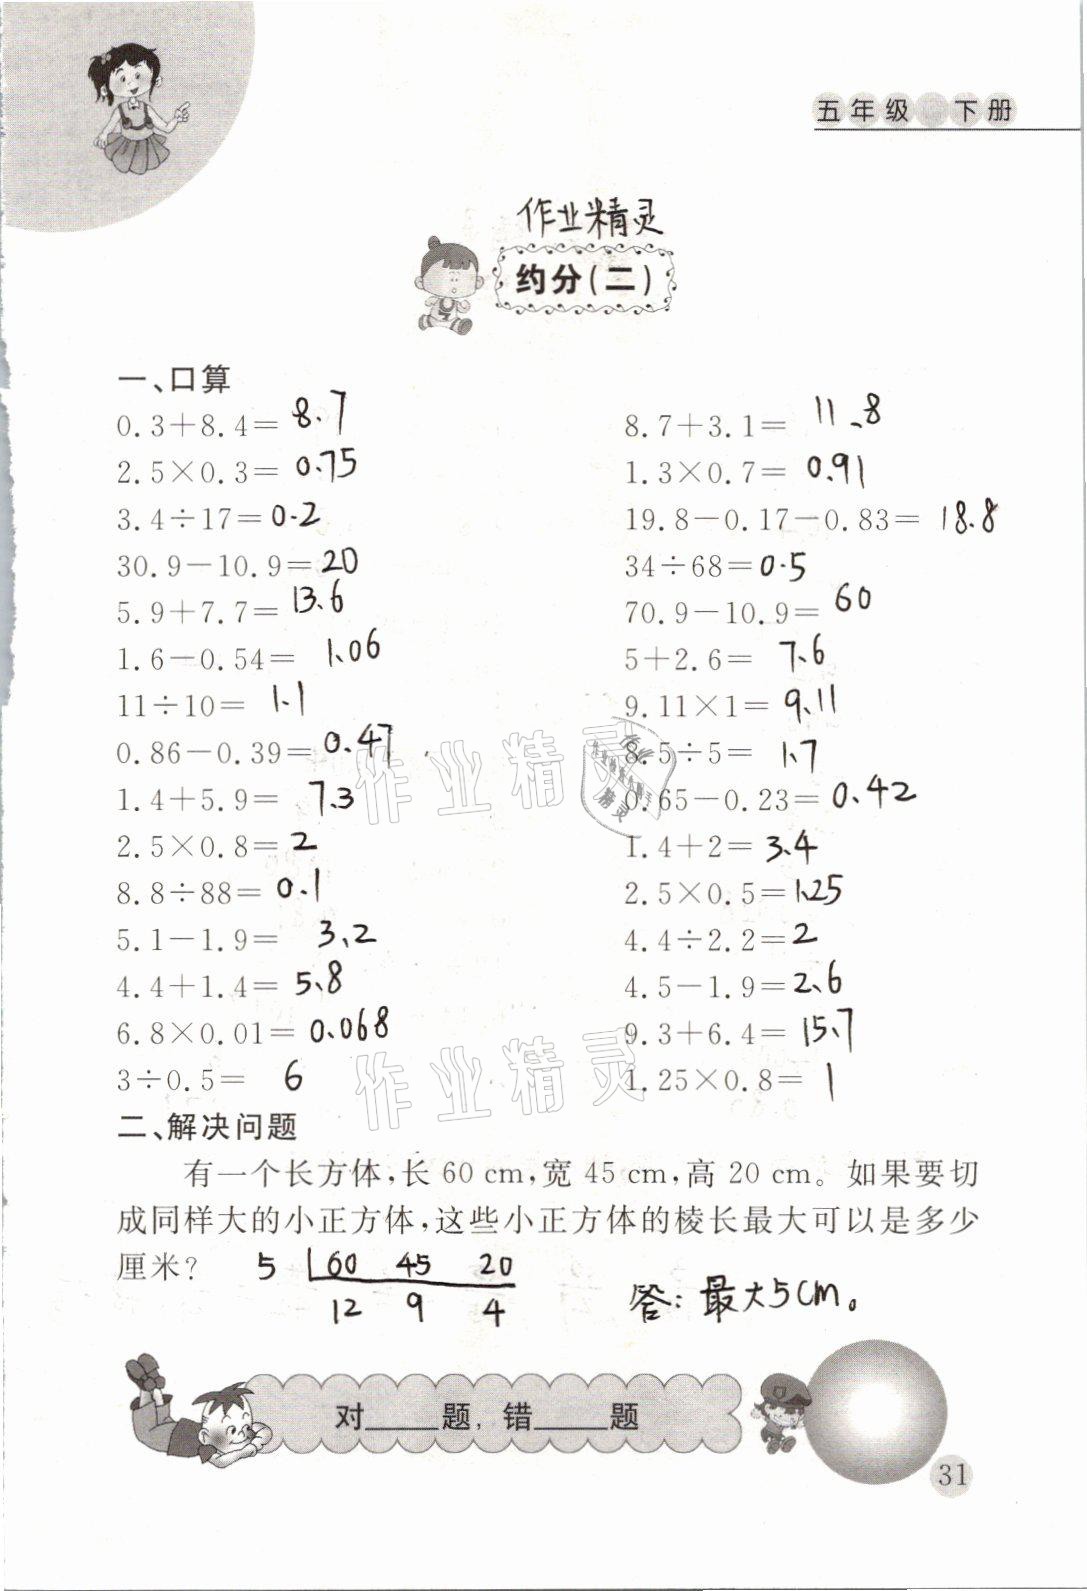 五年级 下册
作业精灵
约分(二)
一、口算
0.3+8.4= 8.7
8.7+3.1= 11.8
2.5×0.3= 0.75
1.3×0.7= 0.91
3.4÷17= 0.2
19.8-0.17-0.83= 18.8
30.9-10.9= 20
34÷68= 0.5
5.9+7.7= 13.6
70.9-10.9= 60
1.6-0.54= 1.06
5+2.6= 7.6
11÷10= 1.1
9.11×1= 9.11
0.86-0.39= 0.47
8.5÷5= 1.7
1.4+5.9= 7.3
0.65-0.23= 0.42
2.5×0.8= 2
1.4+2= 3.4
8.8÷88= 0.1
2.5×0.5= 1.25
5.1-1.9= 3.2
4.4÷2.2= 2
4.4+1.4= 5.8
4.5-1.9= 2.6
6.8×0.01= 0.068
9.3+6.4= 15.7
3÷0.5= 6
1.25×0.8= 1
作业精灵
作业精灵
二、解决问题
有一个长方体,长 60 cm,宽 45 cm,高 20 cm。如果要切
成同样大的小正方体,这些小正方体的棱长最大可以是多少
厘米? 5 60 45 20
12 9 4 答:最大5cm。
对____题,错____题
31